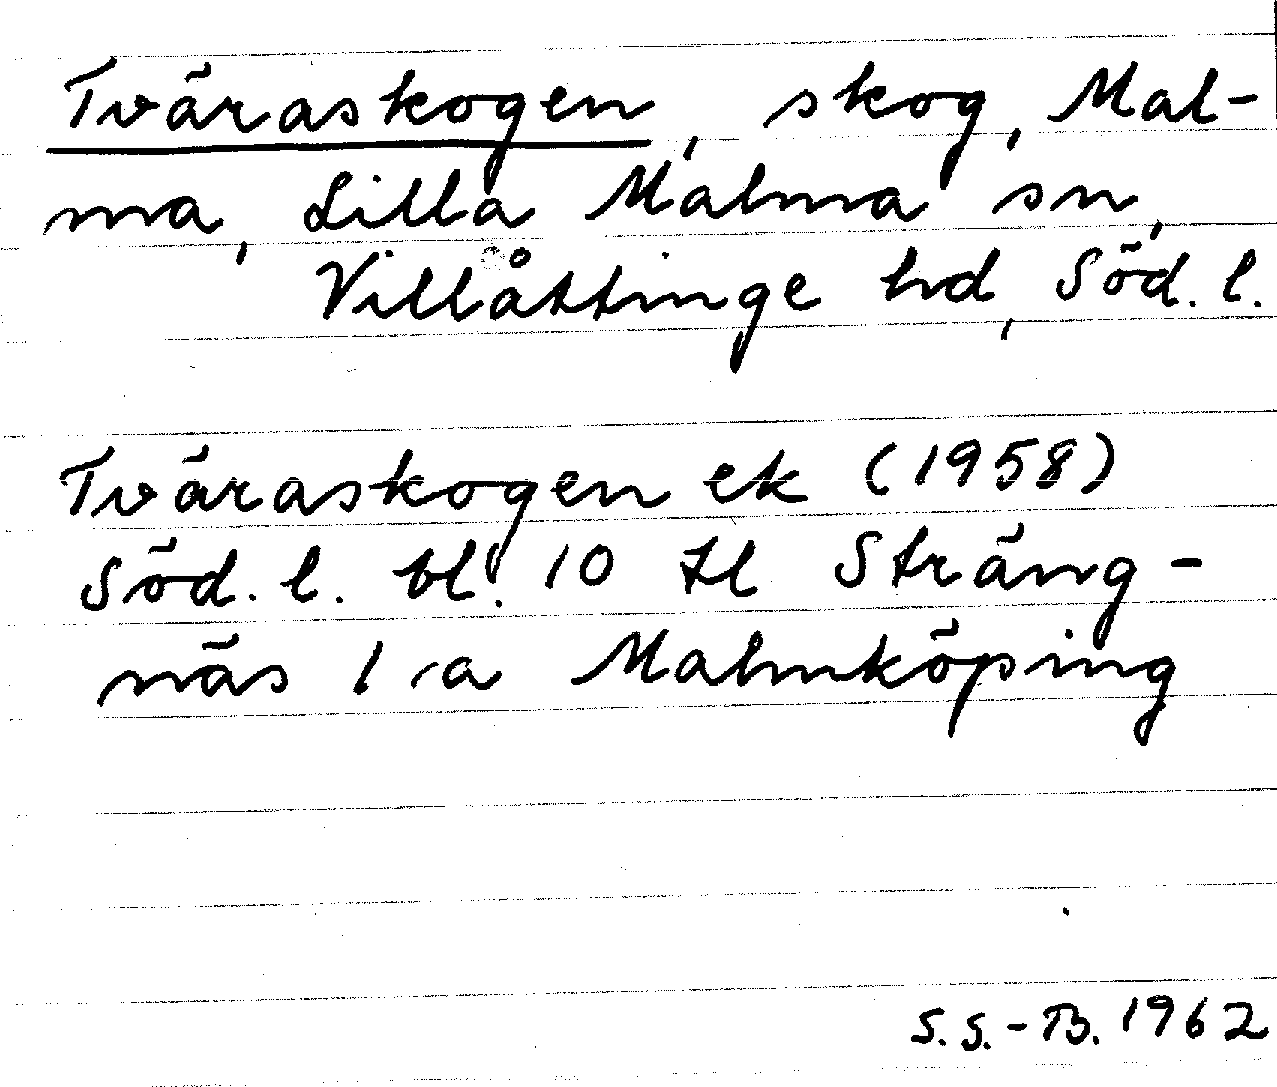 Tväraskogen, skog, Mal-
ma, Lilla Malma sn,
Villåttinge hd, Söd. l.
Tväraskogen ek (1958)
Söd. l. bl. 10 tl Sträng-
näs 1 a Malmköping
S.S.-B. 1962